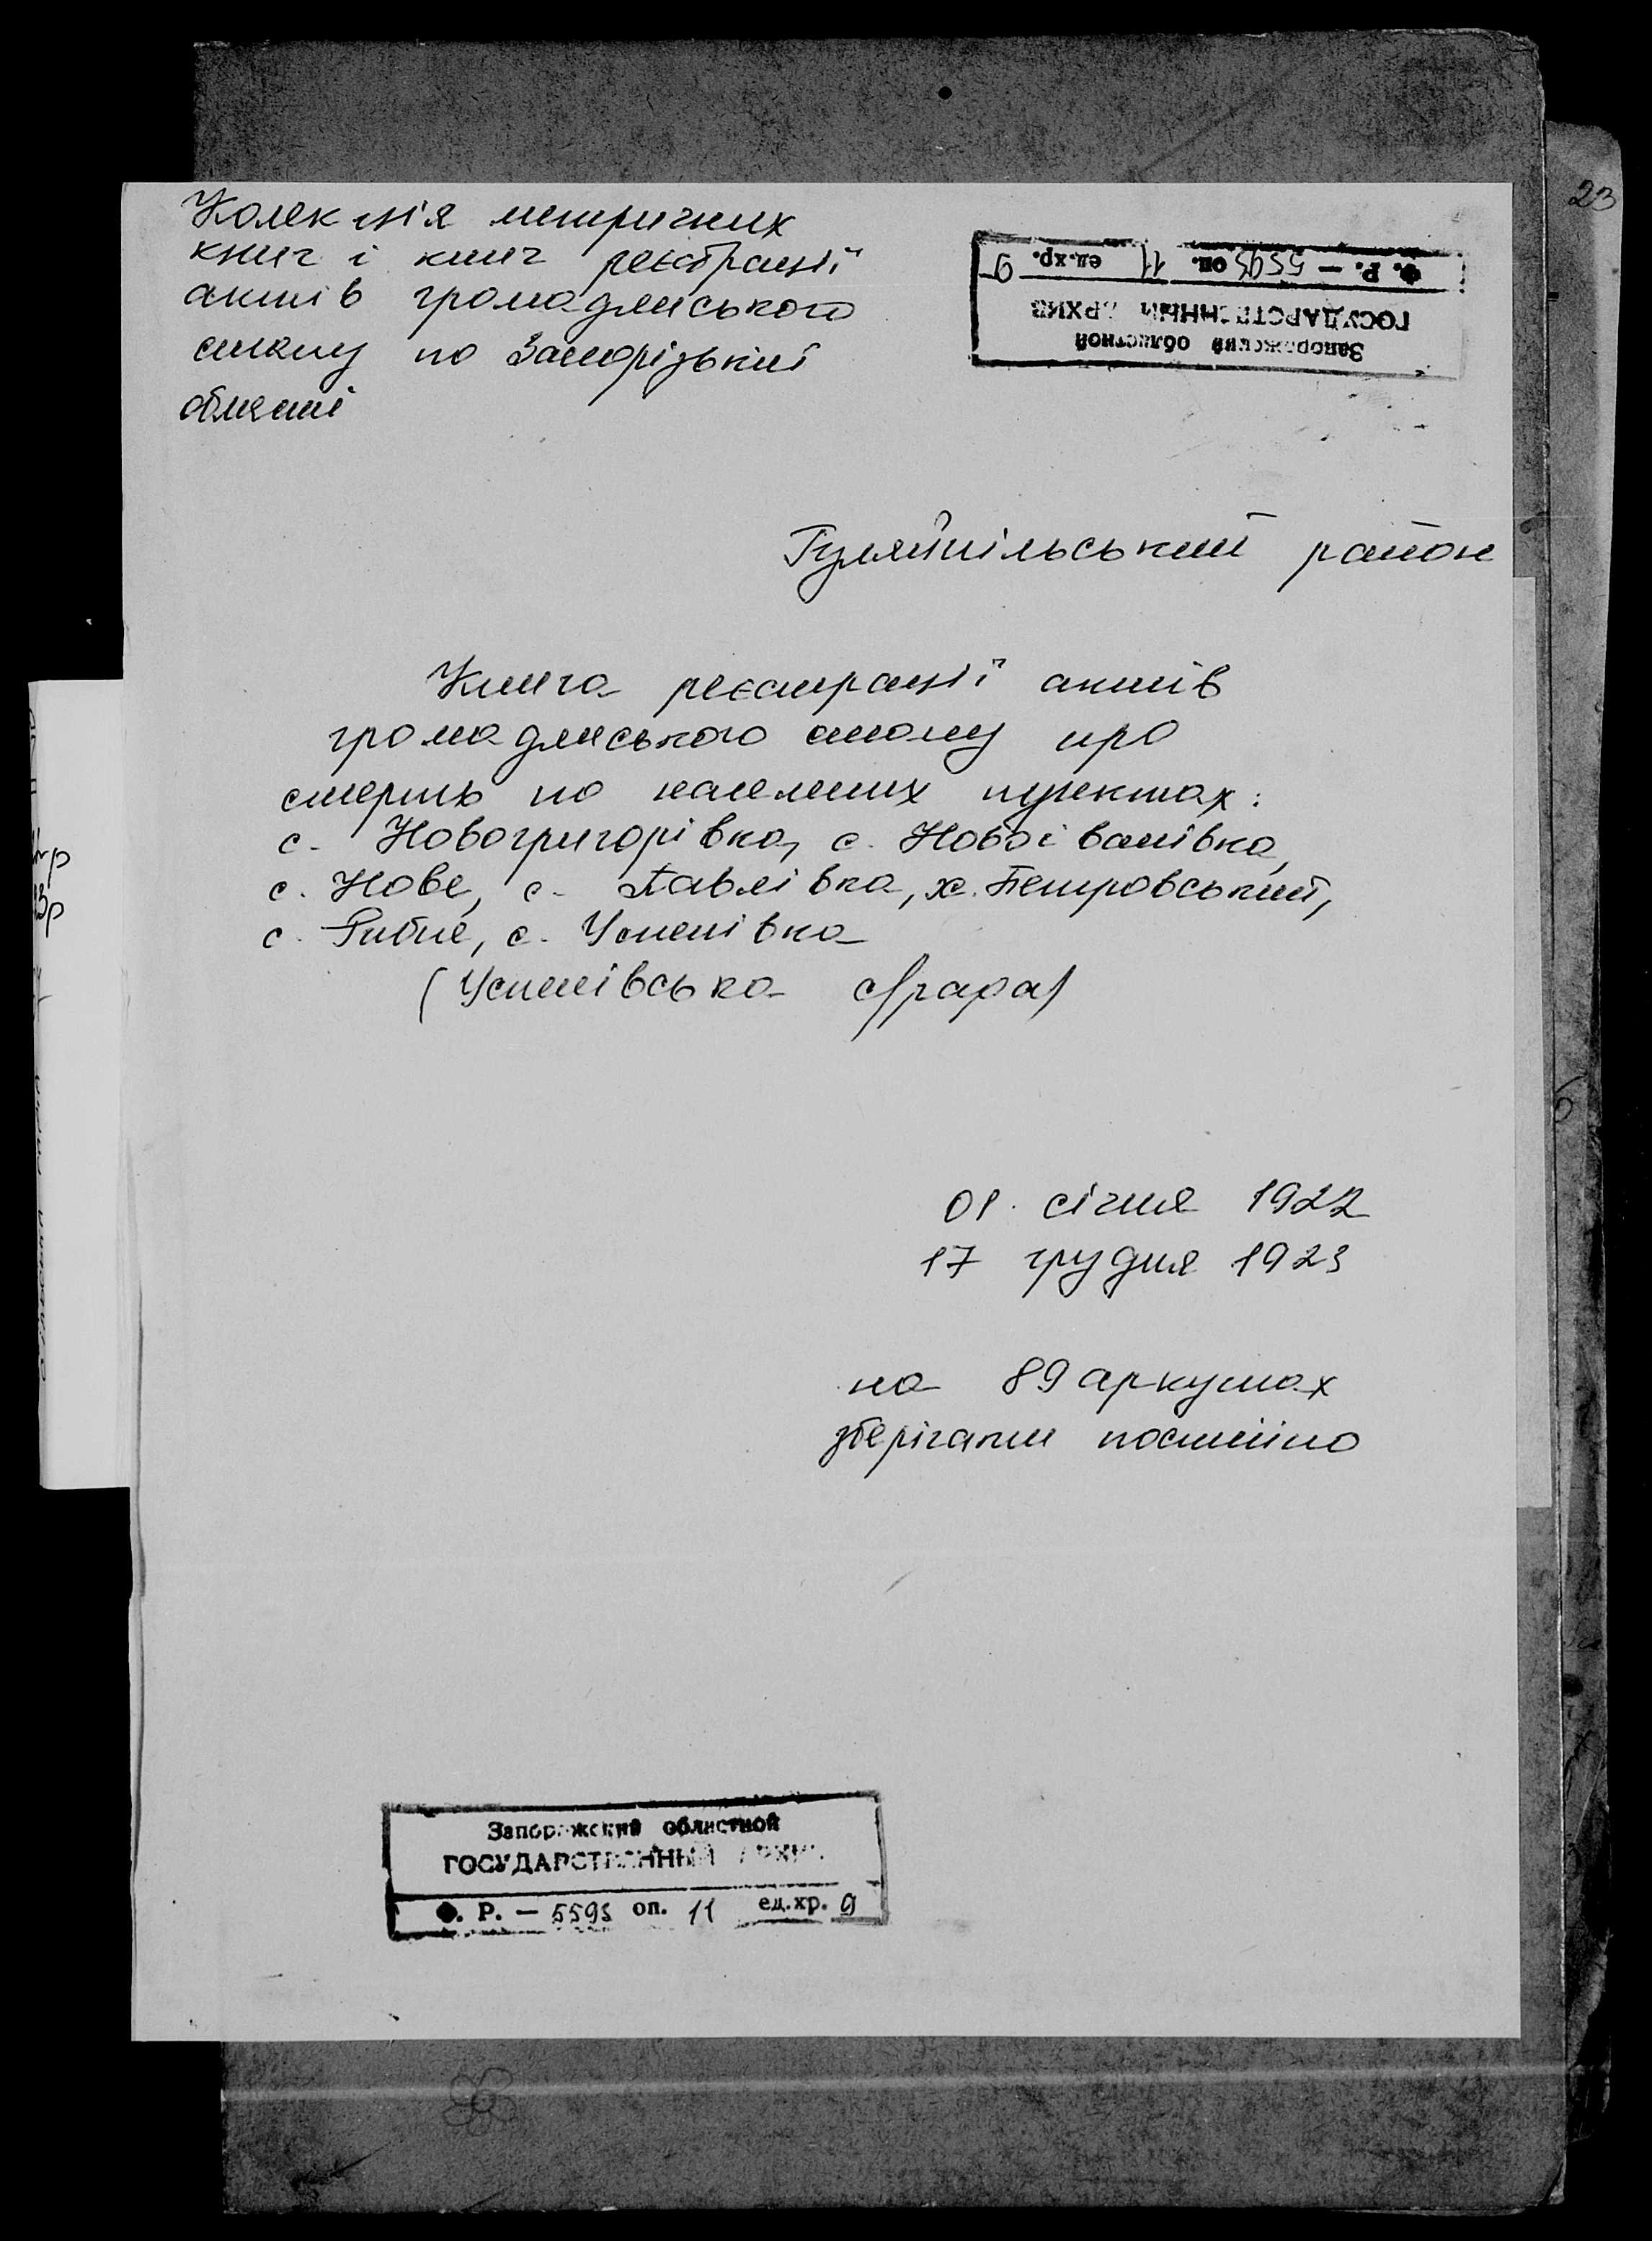 Колекція метричних
книг і книг реєстрації
актів громадянського
стану по Запорізькій
області
Запорожский областной
ГОСУДАРСТВЕННЫЙ АРХИВ
Ф. Р. — 5593 оп. 11 ед.хр. 9
23
Гуляйпільський район
Книга реєстрації актів
громадянського стану про
смерть по населених пунктах:
с. Новогригорівка, с. Новоіванівка,
с. Нове, с. Павлівка, х. Петровський,
с. Рибне, с. Успенівка
(Успенівська с/рада)
01. січня 1922
17 грудня 1923
на 89 аркушах
зберігати постійно
Запорожский областной
ГОСУДАРСТВЕННЫЙ АРХИВ
Ф. Р. — 5593 оп. 11 ед.хр. 9